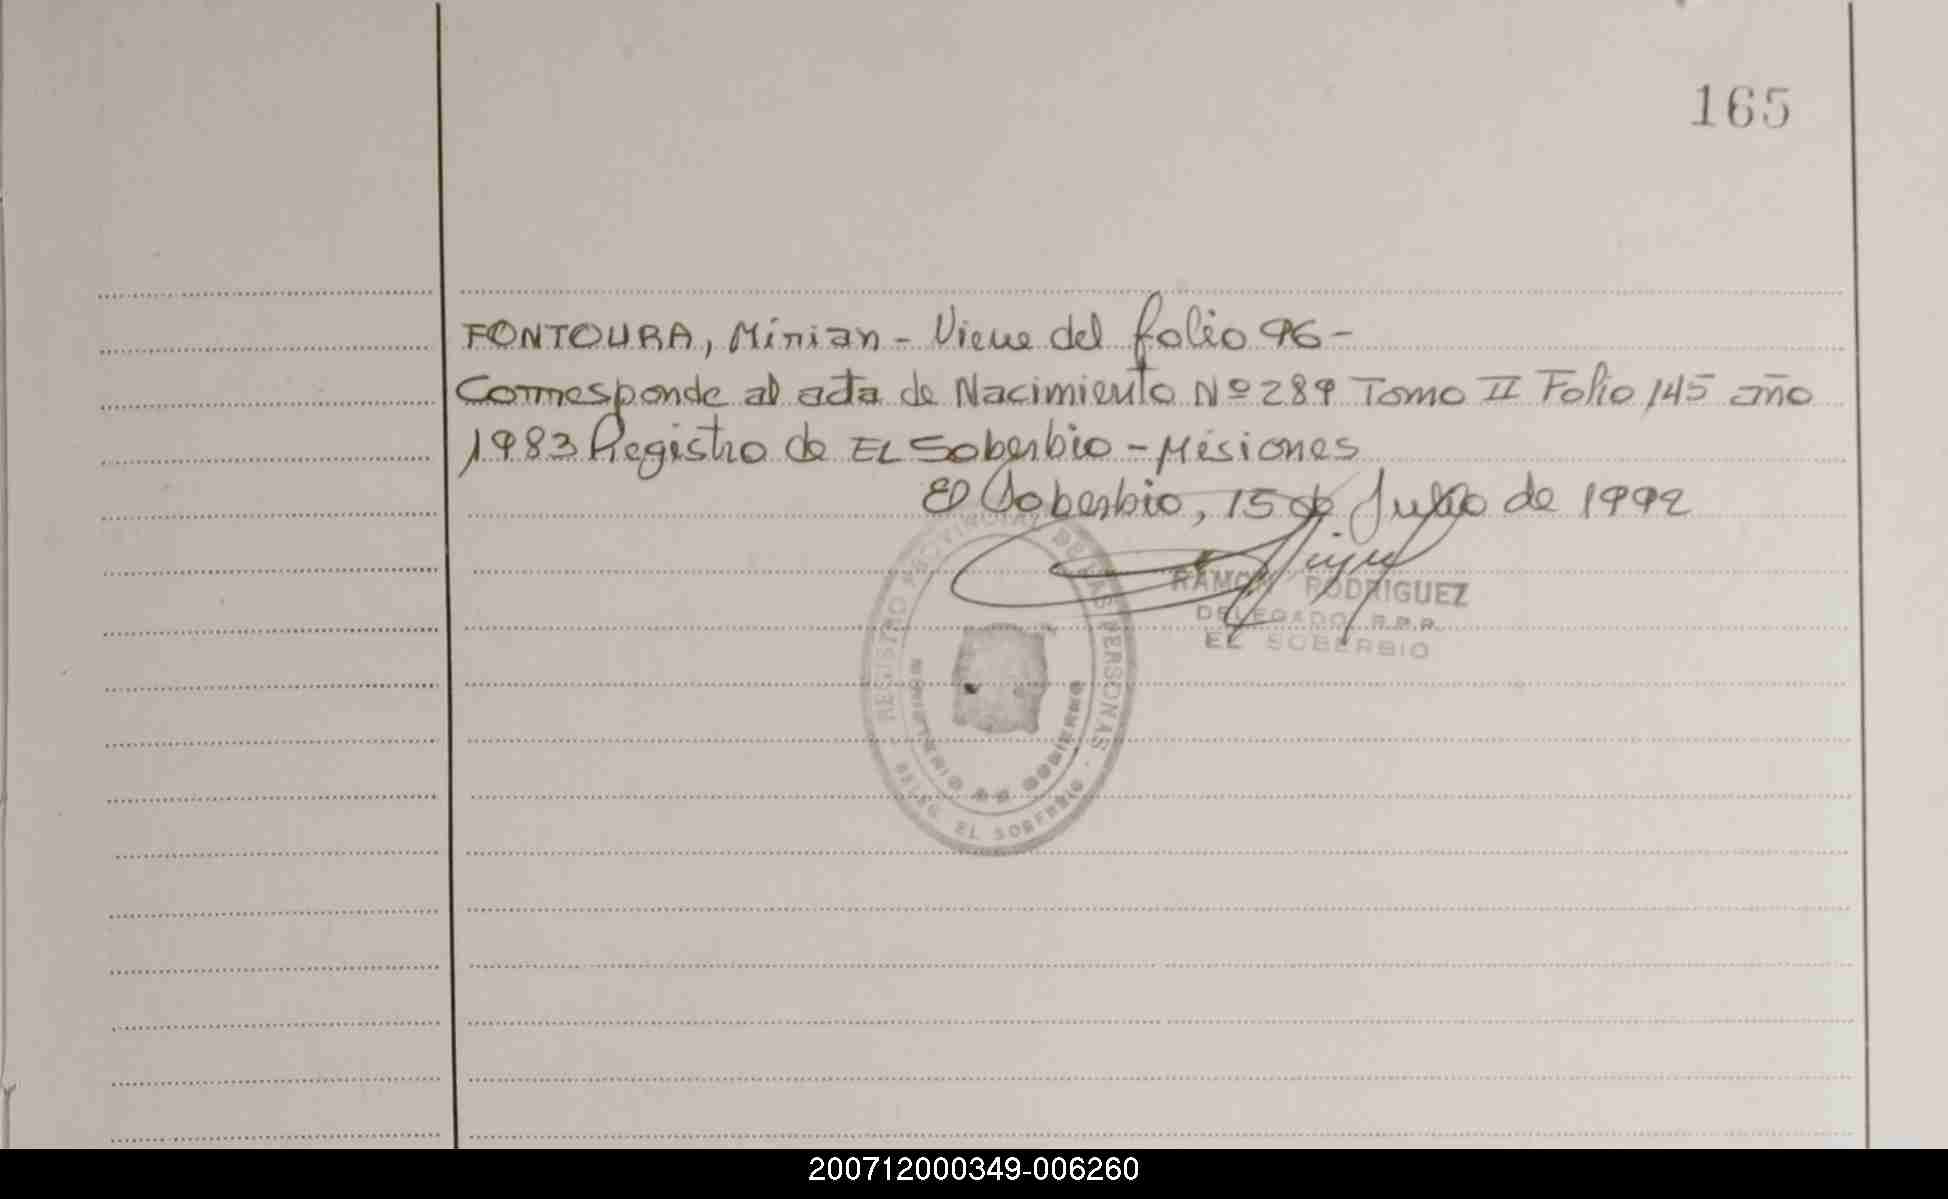 165
FONTOURA, Mirian - Viene del folio 96 -
Corresponde al acta de Nacimiento Nº 289 Tomo II Folio 145 año
1983 Registro de EL Soberbio - Misiones
El Soberbio, 15 de Julio de 1992
RAMON RODRIGUEZ
DELEGADO R.P.P.
EL SOBERBIO
REGISTRO PROVINCIAL DE LAS PERSONAS
MINISTERIO DE GOBIERNO
DELEG. EL SOBERBIO
200712000349-006260